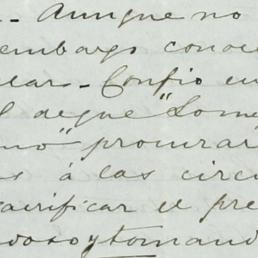 - Aunque no
embargo conoc
- Confio en
el degue "Lome
no" procurar
s á las circ
acrificar el pre
dosoytomand